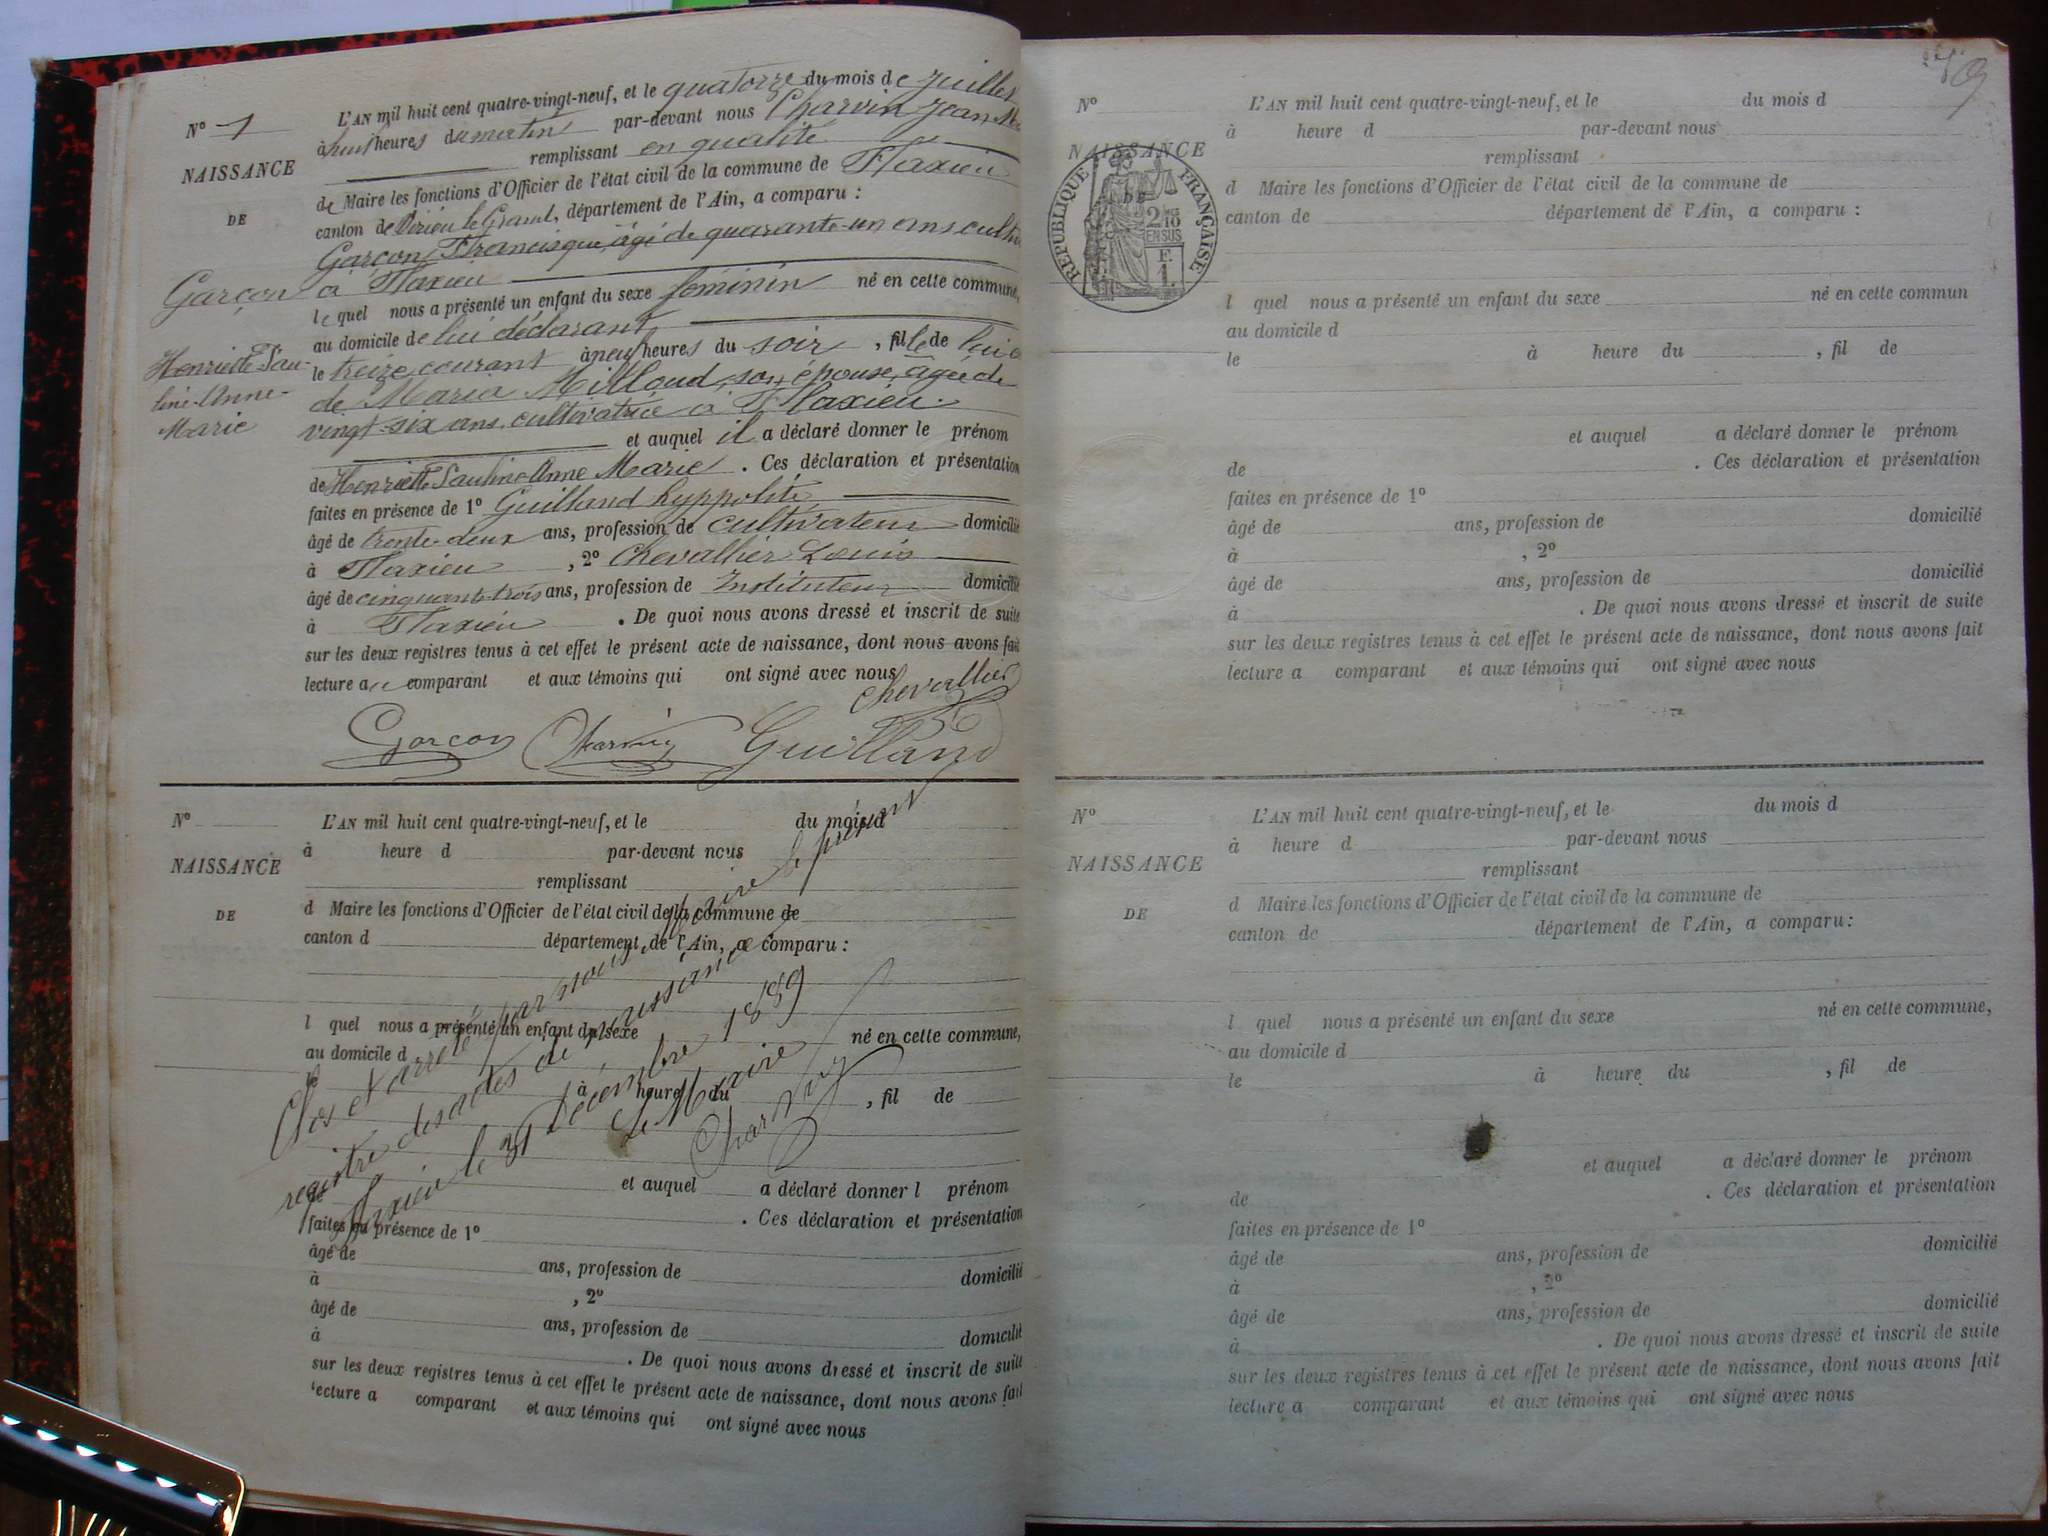 N° 7
NAISSANCE
DE
Garçon
Henriette Pau-
line-Anne-
Marie
L'AN mil huit cent quatre-vingt-neuf, et le quatorze du mois de Juillet
à huit heures du matin par-devant nous Charvin Jean
remplissant en qualité
de Maire les fonctions d'Officier de l'état civil de la commune de Flaxieu
canton de Virieu le Grand, département de l'Ain, a comparu :
Garçon Francisque, âgé de quarante-un ans
à Flaxieu
le quel nous a présenté un enfant du sexe féminin né en cette commune,
au domicile de lui déclarant
le treize courant à neuf heures du soir, fille de lui
de Maria Milloud, son épouse, âgée de
vingt-six ans, cultivatrice à Flaxieu.
et auquel il a déclaré donner le prénom
de Henriette Pauline Anne Marie. Ces déclaration et présentation
faites en présence de 1° Guilland hyppolite
âgé de trente-deux ans, profession de cultivateur domicilié
à Flaxieu, 2° Chevallier Louis
âgé de cinquante-trois ans, profession de Instituteur domicilié
à Flaxieu. De quoi nous avons dressé et inscrit de suite
sur les deux registres tenus à cet effet le présent acte de naissance, dont nous avons fait
lecture au comparant et aux témoins qui ont signé avec nous
Chevallier
Garçon Charvin Guilland
N°
NAISSANCE
DE
L'AN mil huit cent quatre-vingt-neuf, et le du mois d
à heure d par-devant nous
remplissant
d Maire les fonctions d'Officier de l'état civil de la commune de
canton d département de l'Ain, a comparu :
l quel nous a présenté un enfant du sexe né en cette commune,
au domicile d
le à heure du , fil de
et auquel a déclaré donner l prénom
de . Ces déclaration et présentation
faites en présence de 1°
âgé de ans, profession de domicilié
à , 2°
âgé de ans, profession de domicilié
à . De quoi nous avons dressé et inscrit de suite
sur les deux registres tenus à cet effet le présent acte de naissance, dont nous avons fait
lecture a comparant et aux témoins qui ont signé avec nous
Clos et arrêté par nous Maire le présent
registre des actes de naissance
Flaxieu le 31 Décembre 1889
Le Maire
Charvin
N°
NAISSANCE
DE
RÉPUBLIQUE FRANÇAISE
2/10
EN SUS
F.
1.
L'AN mil huit cent quatre-vingt-neuf, et le du mois d
à heure d par-devant nous
remplissant
d Maire les fonctions d'Officier de l'état civil de la commune de
canton de département de l'Ain, a comparu :
l quel nous a présenté un enfant du sexe né en cette commun
au domicile d
le à heure du , fil de
et auquel a déclaré donner le prénom
de . Ces déclaration et présentation
faites en présence de 1°
âgé de ans, profession de domicilié
à , 2°
âgé de ans, profession de domicilié
à . De quoi nous avons dressé et inscrit de suite
sur les deux registres tenus à cet effet le présent acte de naissance, dont nous avons fait
lecture a comparant et aux témoins qui ont signé avec nous
N°
NAISSANCE
DE
L'AN mil huit cent quatre-vingt-neuf, et le du mois d
à heure d par-devant nous
remplissant
d Maire les fonctions d'Officier de l'état civil de la commune de
canton de département de l'Ain, a comparu:
l quel nous a présenté un enfant du sexe né en cette commune,
au domicile d
le à heure du , fil de
et auquel a déclaré donner le prénom
de . Ces déclaration et présentation
faites en présence de 1°
âgé de ans, profession de domicilié
à , 2°
âgé de ans, profession de domicilié
à . De quoi nous avons dressé et inscrit de suite
sur les deux registres tenus à cet effet le présent acte de naissance, dont nous avons fait
lecture a comparant et aux témoins qui ont signé avec nous